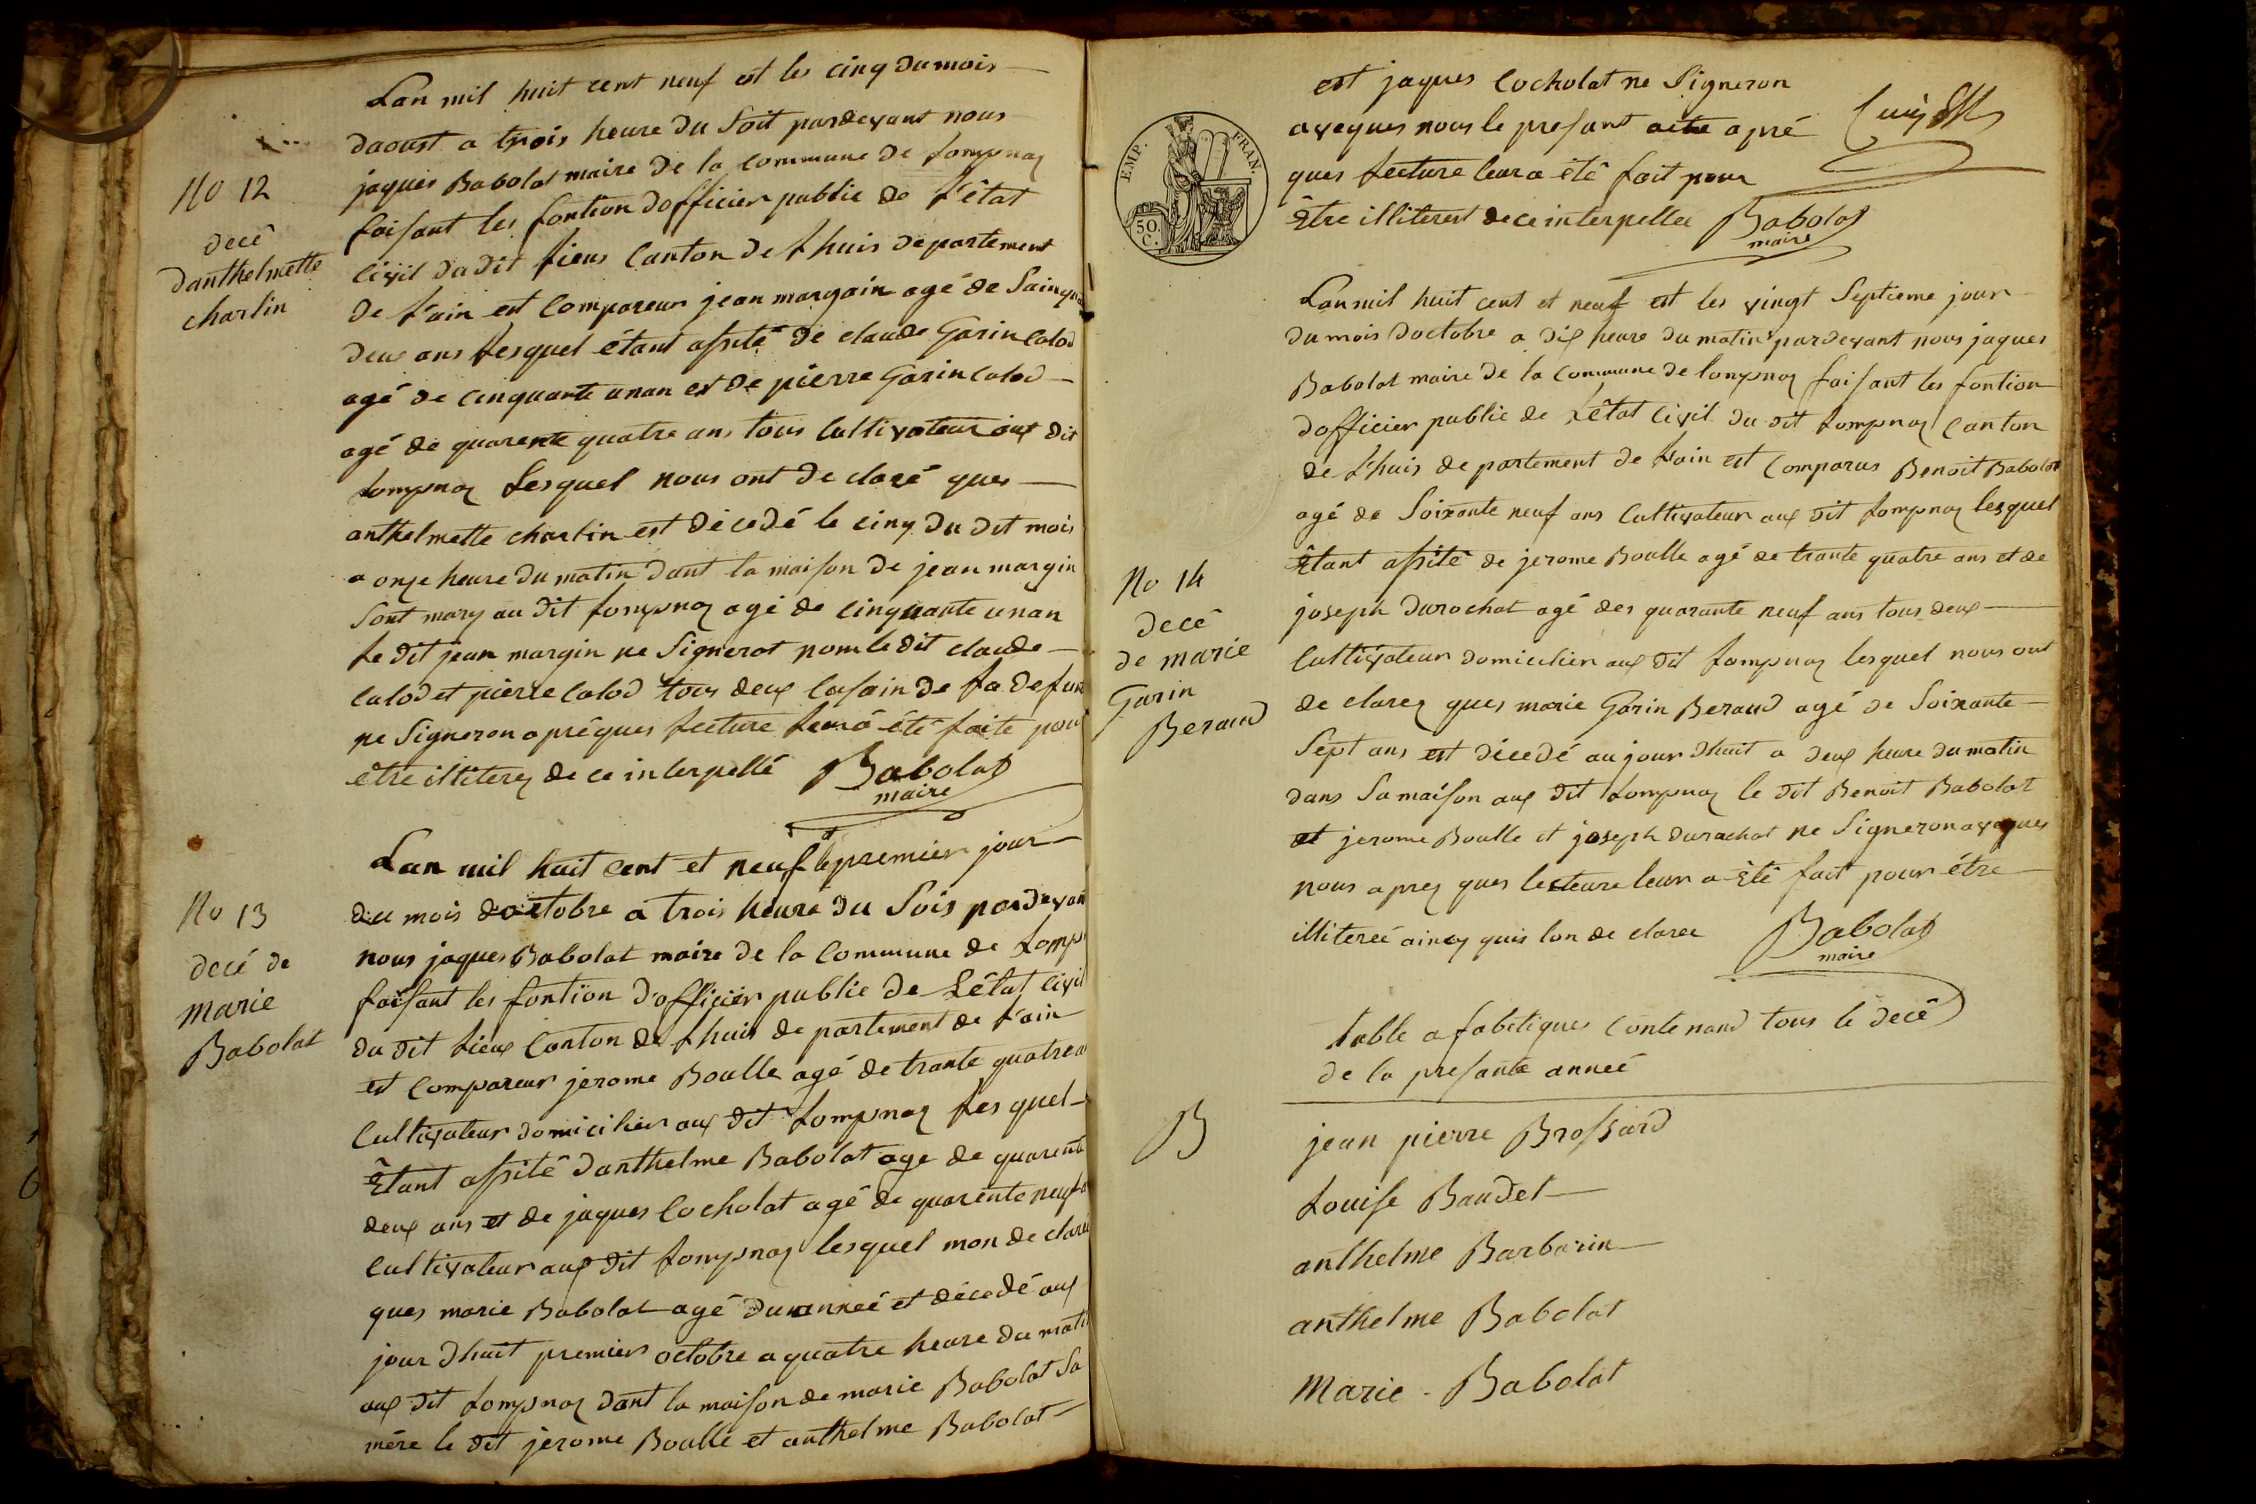 Lan mil huit cent neuf est les cinq dumois
daoust a trois heure du Soit pardevant nous
jaques Babolat maire de la Commune de Lompnaz
faisant les fontion dofficier public de L'état
Civil dudit Lieux Canton de Lhuis departement
de L'ain est Compareur jean margain agé de Sainqua
deux ans Lesquel étant assité de claude Garin Calod
agé de cinquante unan et de pierre Garin calod
agé de quarente quatre ans tous Cultivateur aux dit
Lompnaz Lesquel nous ont de claré ques
anthelmette charlin est décedé le cinq du dit mois
a onze heure du matin dant la maison de jean margin
Sont mary au dit Lompnaz agé de cinquante unan
Le dit jean margin ne Signerot nomledit claude
calod et pierre calod tous deux Cusain de La defun
ne Signeron apréques Lecture Leurá été faite pour
etre illiterez de ce interpellé Babolat
maire
No 12
decê
danthelmette
charlin
Lan mil huit cent et neuf le premier jour
du mois doctobre a trois heure du Sois pardevan
nous jaques Babolat maire de la Commune de Lomp
faisant les fontion d'officier public de L'état Civil
du dit Lieux Canton de Lhuis de partement de L'ain
est Compareur jerome Boulle agé de trante quatre a
Cultivateur domicilier aux dit Lompnaz Les quel
Etant assité danthelme Babolat age de quarente
deux ans et de jaques Cocholat agé de quarente neuf a
Cultivateur aux dit Lompnaz lesquel mon de claré
ques marie Babolat agé dunanneé et décedé aux
jour dhuit premier octobre a quatre heure du mati
aux dit Lompnaz dant la maison de marie Babolat Sa
mére le dit jerome Boulle et anthelme Babolat
No 13
decé de
Marie
Babolat
est jaques Cocholat ne Signeron
aveques nous le presant acte apré
ques Lecture leur a été fait pour
Etre illiterest de ce interpellee Babolat
maire
EMP. FRAN.
50.
C.
Lan mil huit cent et neuf est les vingt Septieme jour
du mois doctobre a dix heure du matin pardevant nous jaques
Babolat maire de la Commune de Lompnaz faisant les fontion
dofficier public de L'êtat Civil du dit Lompnaz Canton
de L'huis de partement de L'ain est Comparus Benoit Babolat
agé de Soixante neuf ans Cultivateur aux dit Lompnaz lesquel
Etant assité de jerome Boulle agé de trante quatre ans et de
joseph durochat agé des quarante neuf ans tous deux
Cultivateur domicilier aux dit Lompnaz lesquel nous ont
de clarez ques marie Garin Beraud agé de Soixante
Sept ans est décedé aujour dhuit a deux heure du matin
dans Sa maison aux dit Lompnaz le dit Benoit Babolat
et jerome Boulle et joseph durachat ne Signeron aveques
nous aprez ques lecteure leur a Eté fait pour étre
illitereé aincy quis lon de claree Babolat
maire
No 14
decê
de marie
Garin
Beraud
table afabetiques Contenand tous le decê
de la presante anneé
B
jean pierre Brossard
Louise Baudet
anthelme Barbarin
anthelme Babolat
Marie - Babolat